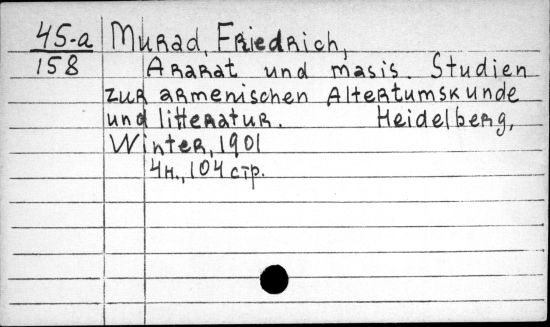 45-a Murad, Friedrich,
158 Ararat und masis. Studien
zur armenischen Altertumskunde
und litteratur. Heidelberg,
Winter, 1901
4н., 104 стр.